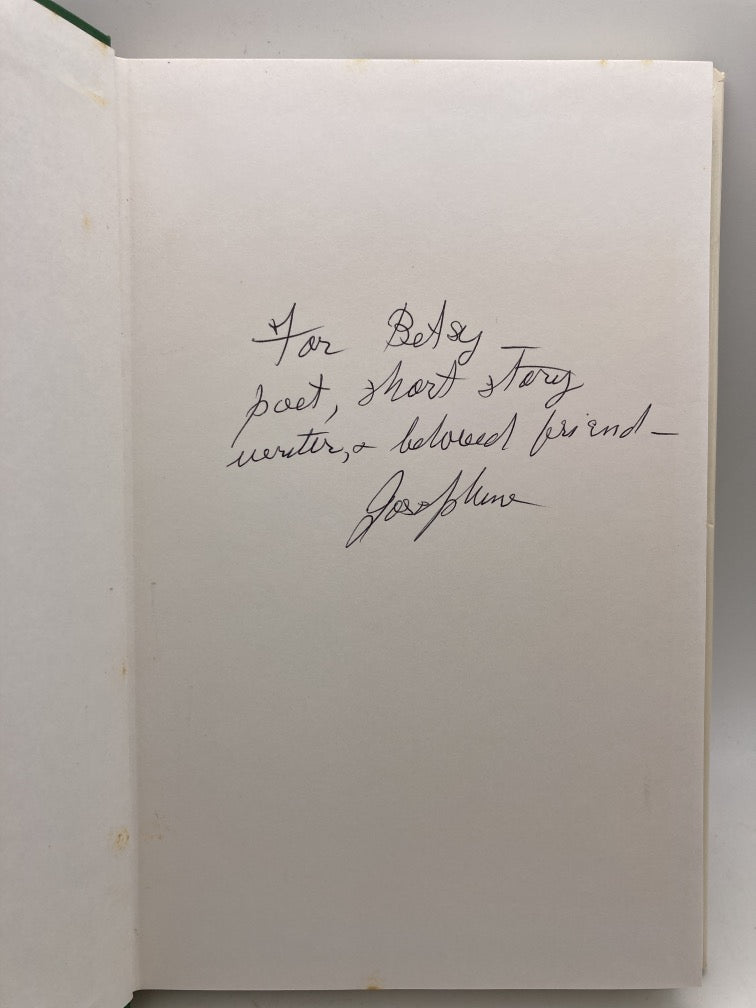 For Betsy
poet, short story
writer, & beloved friend—
Josephine